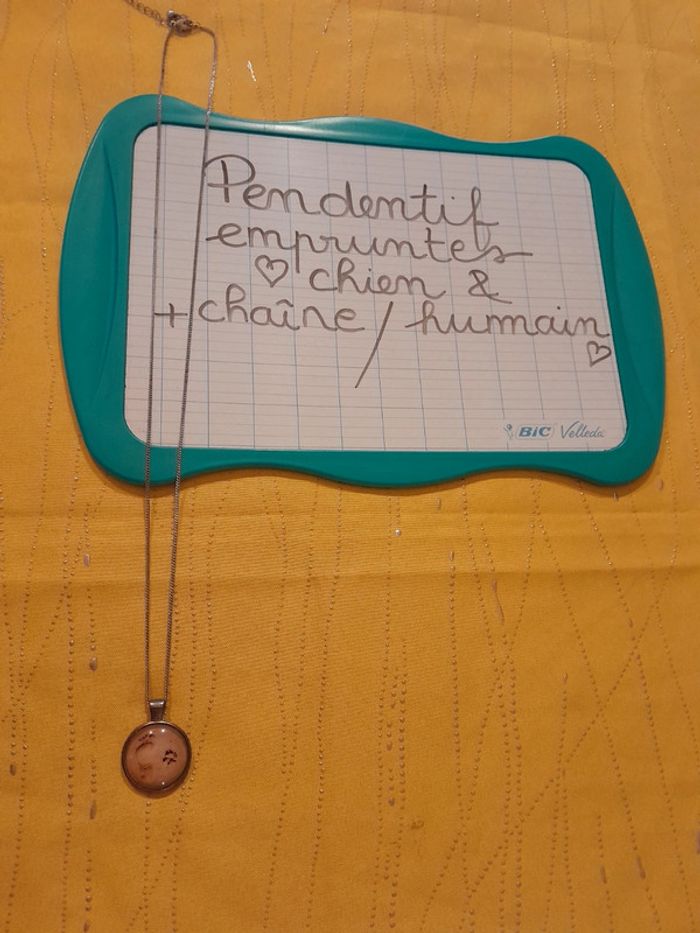 Pendentif
empruntes
♡ chien &
+ chaîne / humain
♡
BIC Velleda